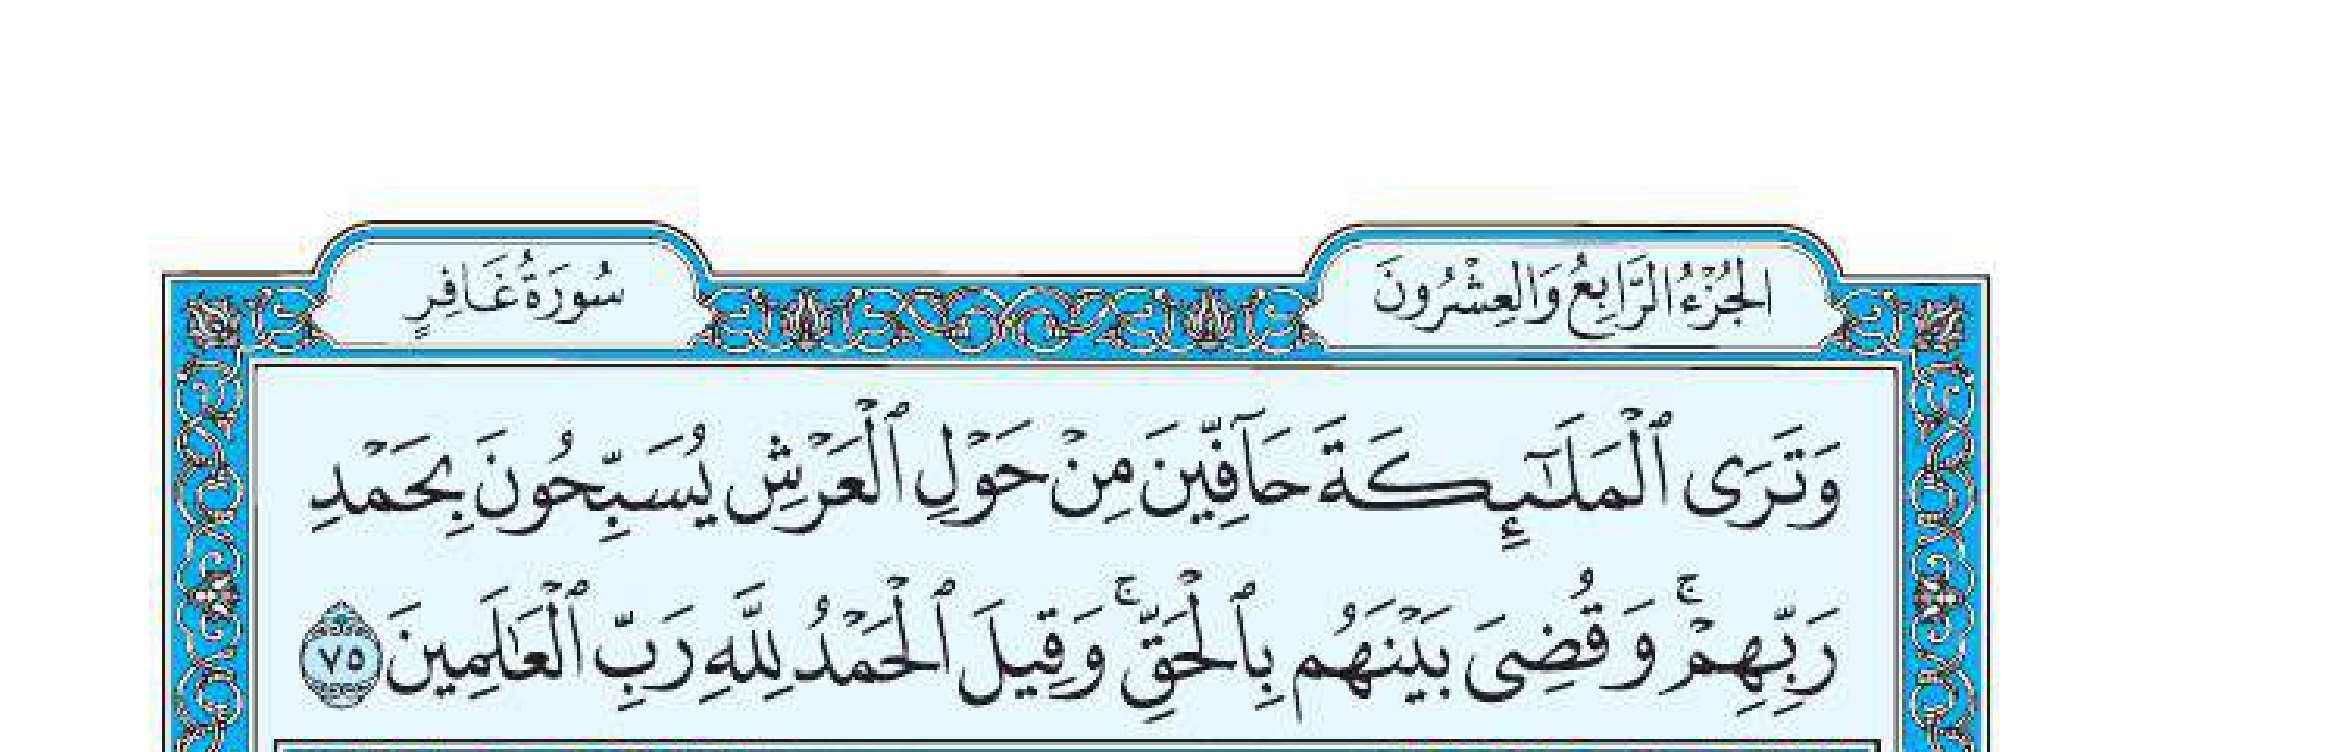 الجُزْءُ الرَّابِعُ وَالعِشْرُونَ
سُورَةُ غَافِرٍ
وَتَرَى ٱلْمَلَـٰٓئِكَةَ حَآفِّينَ مِنْ حَوْلِ ٱلْعَرْشِ يُسَبِّحُونَ بِحَمْدِ
رَبِّهِمْ ۚ وَقُضِىَ بَيْنَهُم بِٱلْحَقِّ ۚ وَقِيلَ ٱلْحَمْدُ لِلَّهِ رَبِّ ٱلْعَـٰلَمِينَ ٧٥